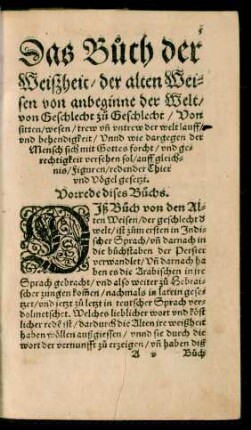 Das Bůch der
Weißheit / der alten Wei-
sen von anbeginne der Welt /
von Geschlecht zů Geschlecht / Von
sitten / wesen / trew vñ vntrew der welt lauff /
vnd behendigkeit / Vnnd wie dargegen der
Mensch sich mit Gottes forcht / vnd ge-
rechtigkeit versehen sol / auff gleich-
nis / figuren / redender Thier
vnd Vögel gesetzt.
Vorrede dises Bůchs.
DIß Bůch von den Al-
ten Weisen / der geschlecht d
welt / ist zům ersten in Indi-
scher Sprach / vñ darnach in
die bůchstaben der Persier
verwandlet / Vñ darnach ha
ben es die Arabischen in jre
Sprach gebracht / vnd also weiter zů Hebrai-
scher zungen kom̃en / nachmals in latein gese-
tzet / vnd jetzt zů letzt in teutscher Sprach ver-
dolmetschet. Welches lieblicher wort vnd köst
licher rede ist / dardurch die Alten ire weißheit
haben wöllen außgiessen / vnnd sie durch die
wort der vernunfft zů erzeigen / vñ haben diß
A Bůch